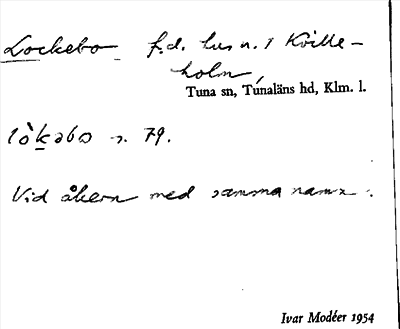 Lockebo f.d. hus n. i Kville-
holm,
Tuna sn, Tunaläns hd, Klm. l.
lòkəbo n. 79.
Vid åkern med samma namn.
Ivar Modéer 1954